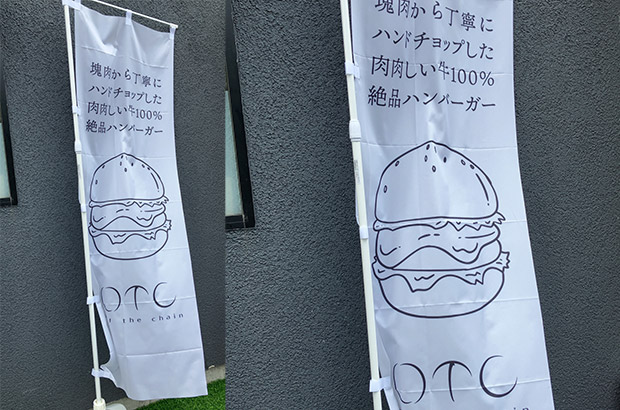 塊肉から丁寧に
ハンドチョップした
肉肉しい牛100%
絶品ハンバーガー
OTC
the chain
塊肉から丁寧に
ハンドチョップした
肉肉しい牛100%
絶品ハンバーガー
OTC